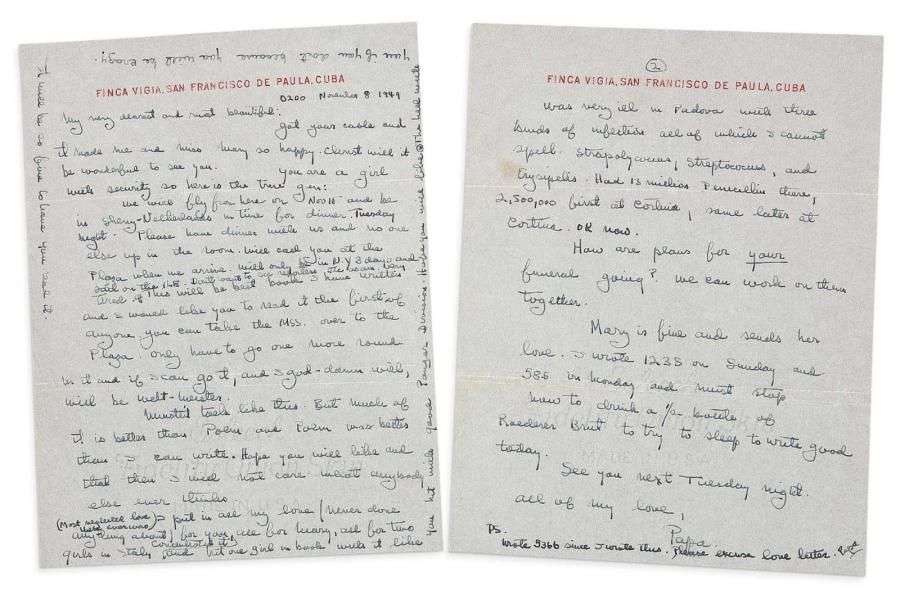 you if you don't because you will be crazy!
FINCA VIGIA, SAN FRANCISCO DE PAULA, CUBA
0200 November 8 1949
My very dearest and most beautiful:
Got your cable and
it made me and Miss Mary so happy. Christ will it
be wonderful to see you. You are a girl
with security so here is the true gen:
We will fly for here on Nov 16 and be
in Sherry-Netherlands in time for dinner Tuesday
night. Please have dinner with us and no one
else up in the room. Will call you at the
Plaza when we arrive. Will only be in N.Y. 3 days and
sail on the
tired. This will be best book I have written
and I would like you to read it the first of
anyone. You can take the Mss. over to the
Plaza. Only have to go one more round
in it and if I can go it, and I god-damn will,
will be welt-meister.
Mustn't talk like this. But much of
it is better than Poem and Poem was better
than I can write. Hope you will like and
that then I will not care what anybody
else ever thinks
(Most neglected love) I put in all my love (never done
there ever was
anything about) for you, all for Mary, all for two
girls in Italy and put one girl in book with it like
you hit with good Panzer Division. Hope you will like it
It will be so fine to have you read it.
(2)
was very ill in Padova with three
kinds of infection all of which I cannot
spell. Strapolycocus, Streptococus, and
Erysypells. Had 13 million Penicillin there,
2,500,000 first at Cortina, same later at
Cortina. OK now.
How are plans for your
funeral going? We can work on them
together.
Mary is fine and sends her
love. I wrote 1235 on Sunday and
585 in Monday and must stop
now to drink a 1/2 bottle of
Roederer Brut to try to sleep to write good
today.
See you next Tuesday night.
All of my love,
Papa.
PS.
Wrote 936 since I wrote this. Please excuse love letter.